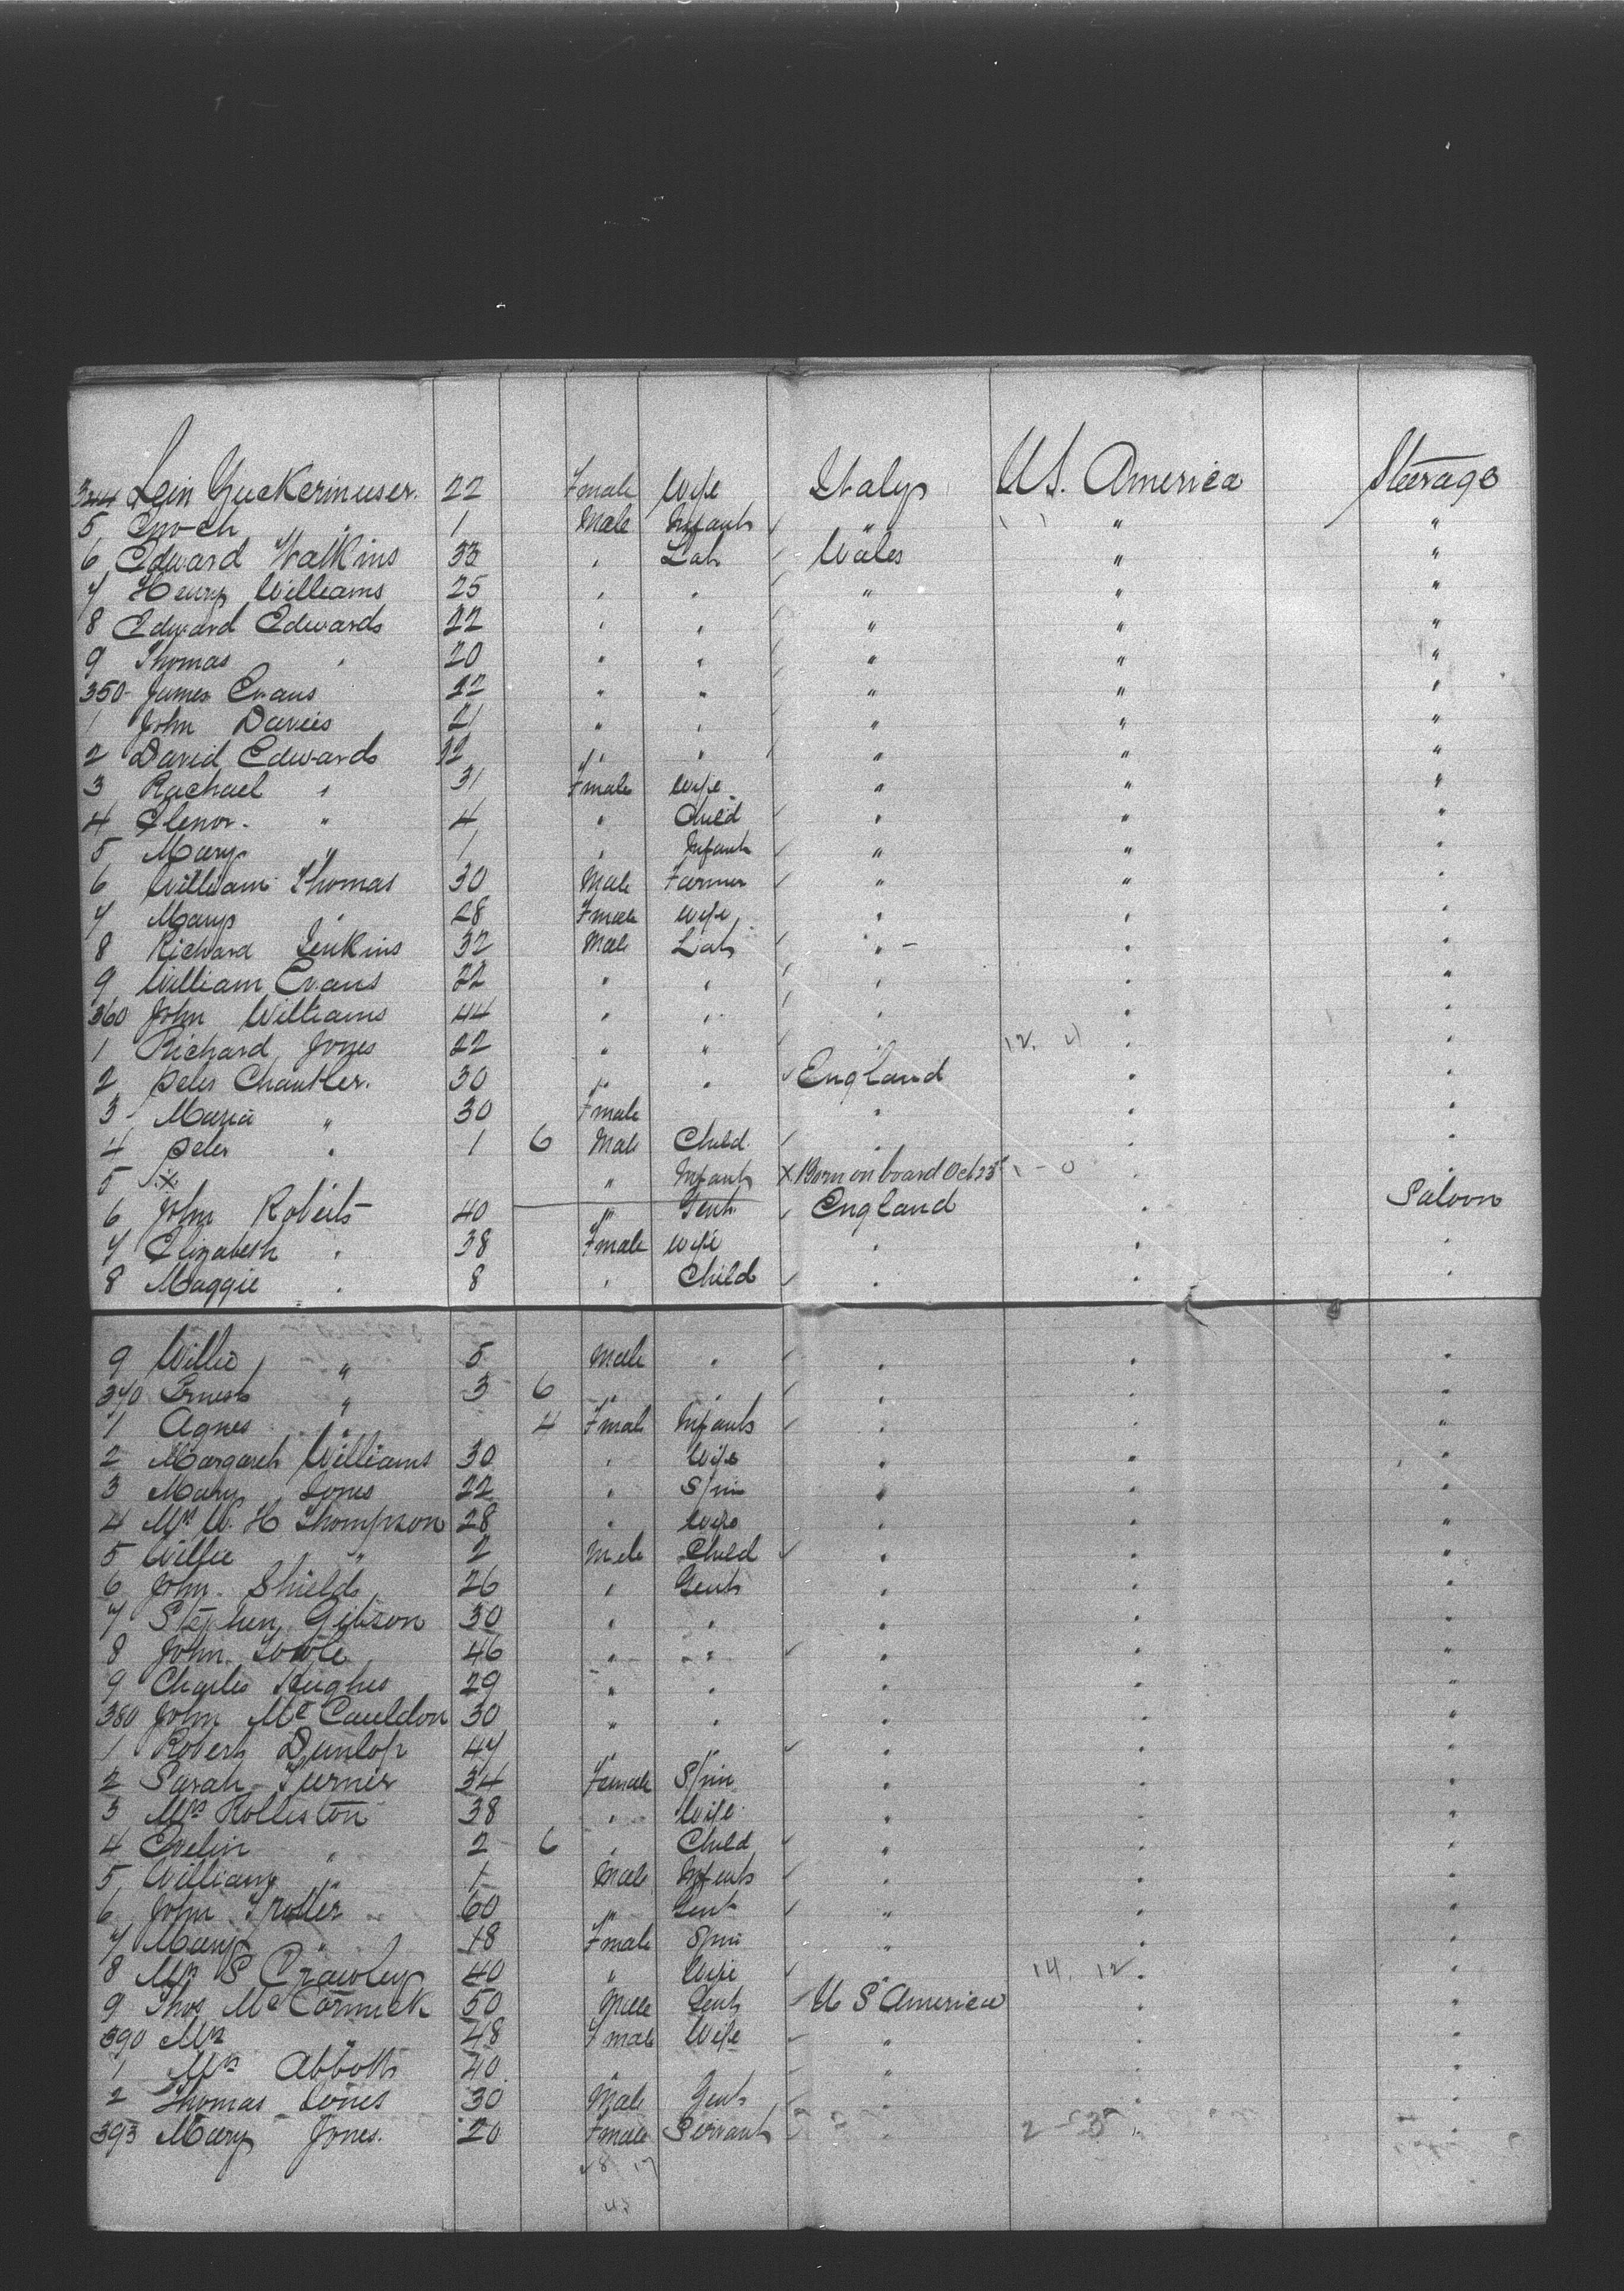 344 Lein Zuckerinuser. 22 Female Wife Italy U.S. America Steerage
5 Enoch " 1 Male Infant " " "
6 Edward Watkins 33 " Lab Wales " "
7 Henry Williams 25 " " " " "
8 Edward Edwards 22 " " " " "
9 Thomas " 20 " " " " "
350 James Evans 22 " " " " "
1 John Davies 21 " " " " "
2 David Edwards 32 " " " " "
3 Rachael " 31 Female Wife " " "
4 Elenor " 4 " Child " " "
5 Mary " 1 " Infant " " "
6 William Thomas 30 Male Farmer " " "
7 Mary " 28 Female Wife " " "
8 Richard Jenkins 32 Male Lab " " "
9 William Evans 22 " " " " "
360 John Williams 44 " " " " "
1 Richard Jones 22 " " " " "
2 Peter Chantler. 30 " " England " "
3 Maria " 30 Female " " "
4 Peter " 1 6 Male Child " " "
5 X " Infant X Born on board Oct 25 " "
6 John Roberts 40 " Gent England " Saloon
7 Elizabeth " 38 Female Wife " " "
8 Maggie " 8 " Child " " "
9 Willie " 5 Male " " " "
370 Ernest " 3 6 " " " " "
1 Agnes " 4 Female Infant " " "
2 Margaret Williams 30 " Wife " " "
3 Mary Jones 22 " Spin " " "
4 Mrs W. H Thompson 28 " Wife " " "
5 Willie " 2 Male Child " " "
6 John Shields 26 " Gent " " "
7 Stephen Gibson 30 " " " " "
8 John Towle 46 " " " " "
9 Charles Hughes 29 " " " " "
380 John McCauldon 30 " " " " "
1 Robert Dunlop 47 " " " " "
2 Sarah Turner 34 Female Spin " " "
3 Mrs Rolleston 38 " Wife " " "
4 Evelin " 2 6 " Child " " "
5 William " 1 Male Infant " " "
6 John Trotter 60 " Gent " " "
7 Mary " 18 Female Spin " " "
8 Mrs S Crawley 40 " Wife " 14. 12 " "
9 Thos McCormick 50 Male Gent U S America " "
390 Mrs " 48 Female Wife " " "
1 Mrs Abbott 40 " " " "
2 Thomas Jones 30 Male Gent " " "
393 Mary Jones. 20 Female Servant " " "